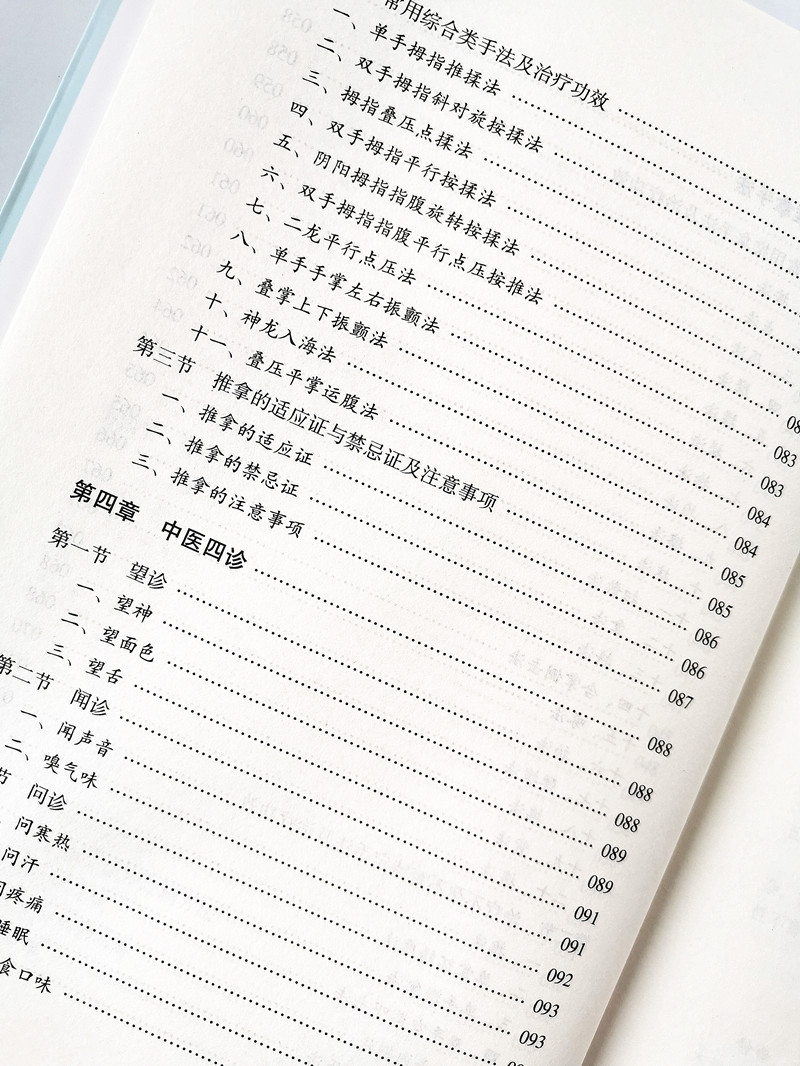 常用综合类手法及治疗功效
一、单手拇指推揉法
二、双手拇指斜对旋按揉法
三、拇指叠压点揉法
四、双手拇指平行按揉法
五、阴阳拇指指腹旋转按揉法
六、双手拇指指腹平行点压按推法
七、二龙平行点压法 083
八、单手手掌左右振颤法 083
九、叠掌上下振颤法 084
十、神龙入海法 084
十一、叠压平掌运腹法 085
第三节 推拿的适应证与禁忌证及注意事项 085
一、推拿的适应证 086
二、推拿的禁忌证 086
三、推拿的注意事项 087
第四章 中医四诊 088
第一节 望诊 088
一、望神 088
二、望面色 089
三、望舌 089
第二节 闻诊 091
一、闻声音 091
二、嗅气味 092
节 问诊 093
问寒热 093
问汗
疼痛
睡眠
食口味